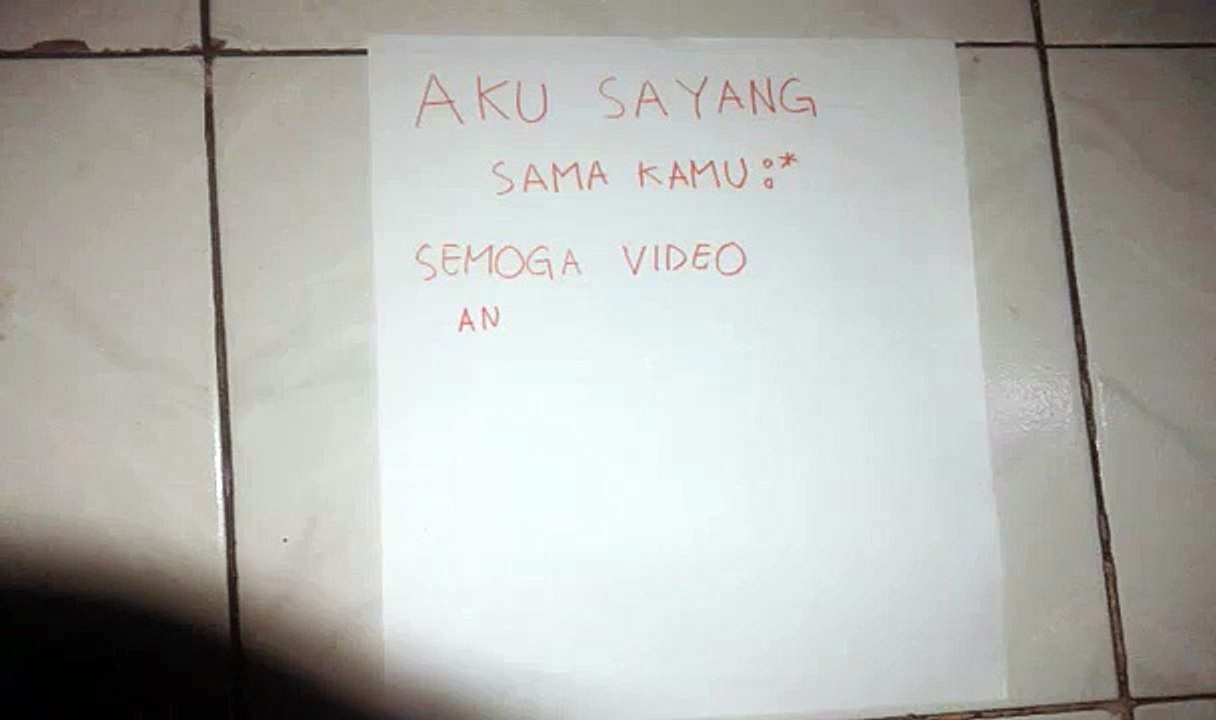 AKU SAYANG
SAMA KAMU :*
SEMOGA VIDEO
AN